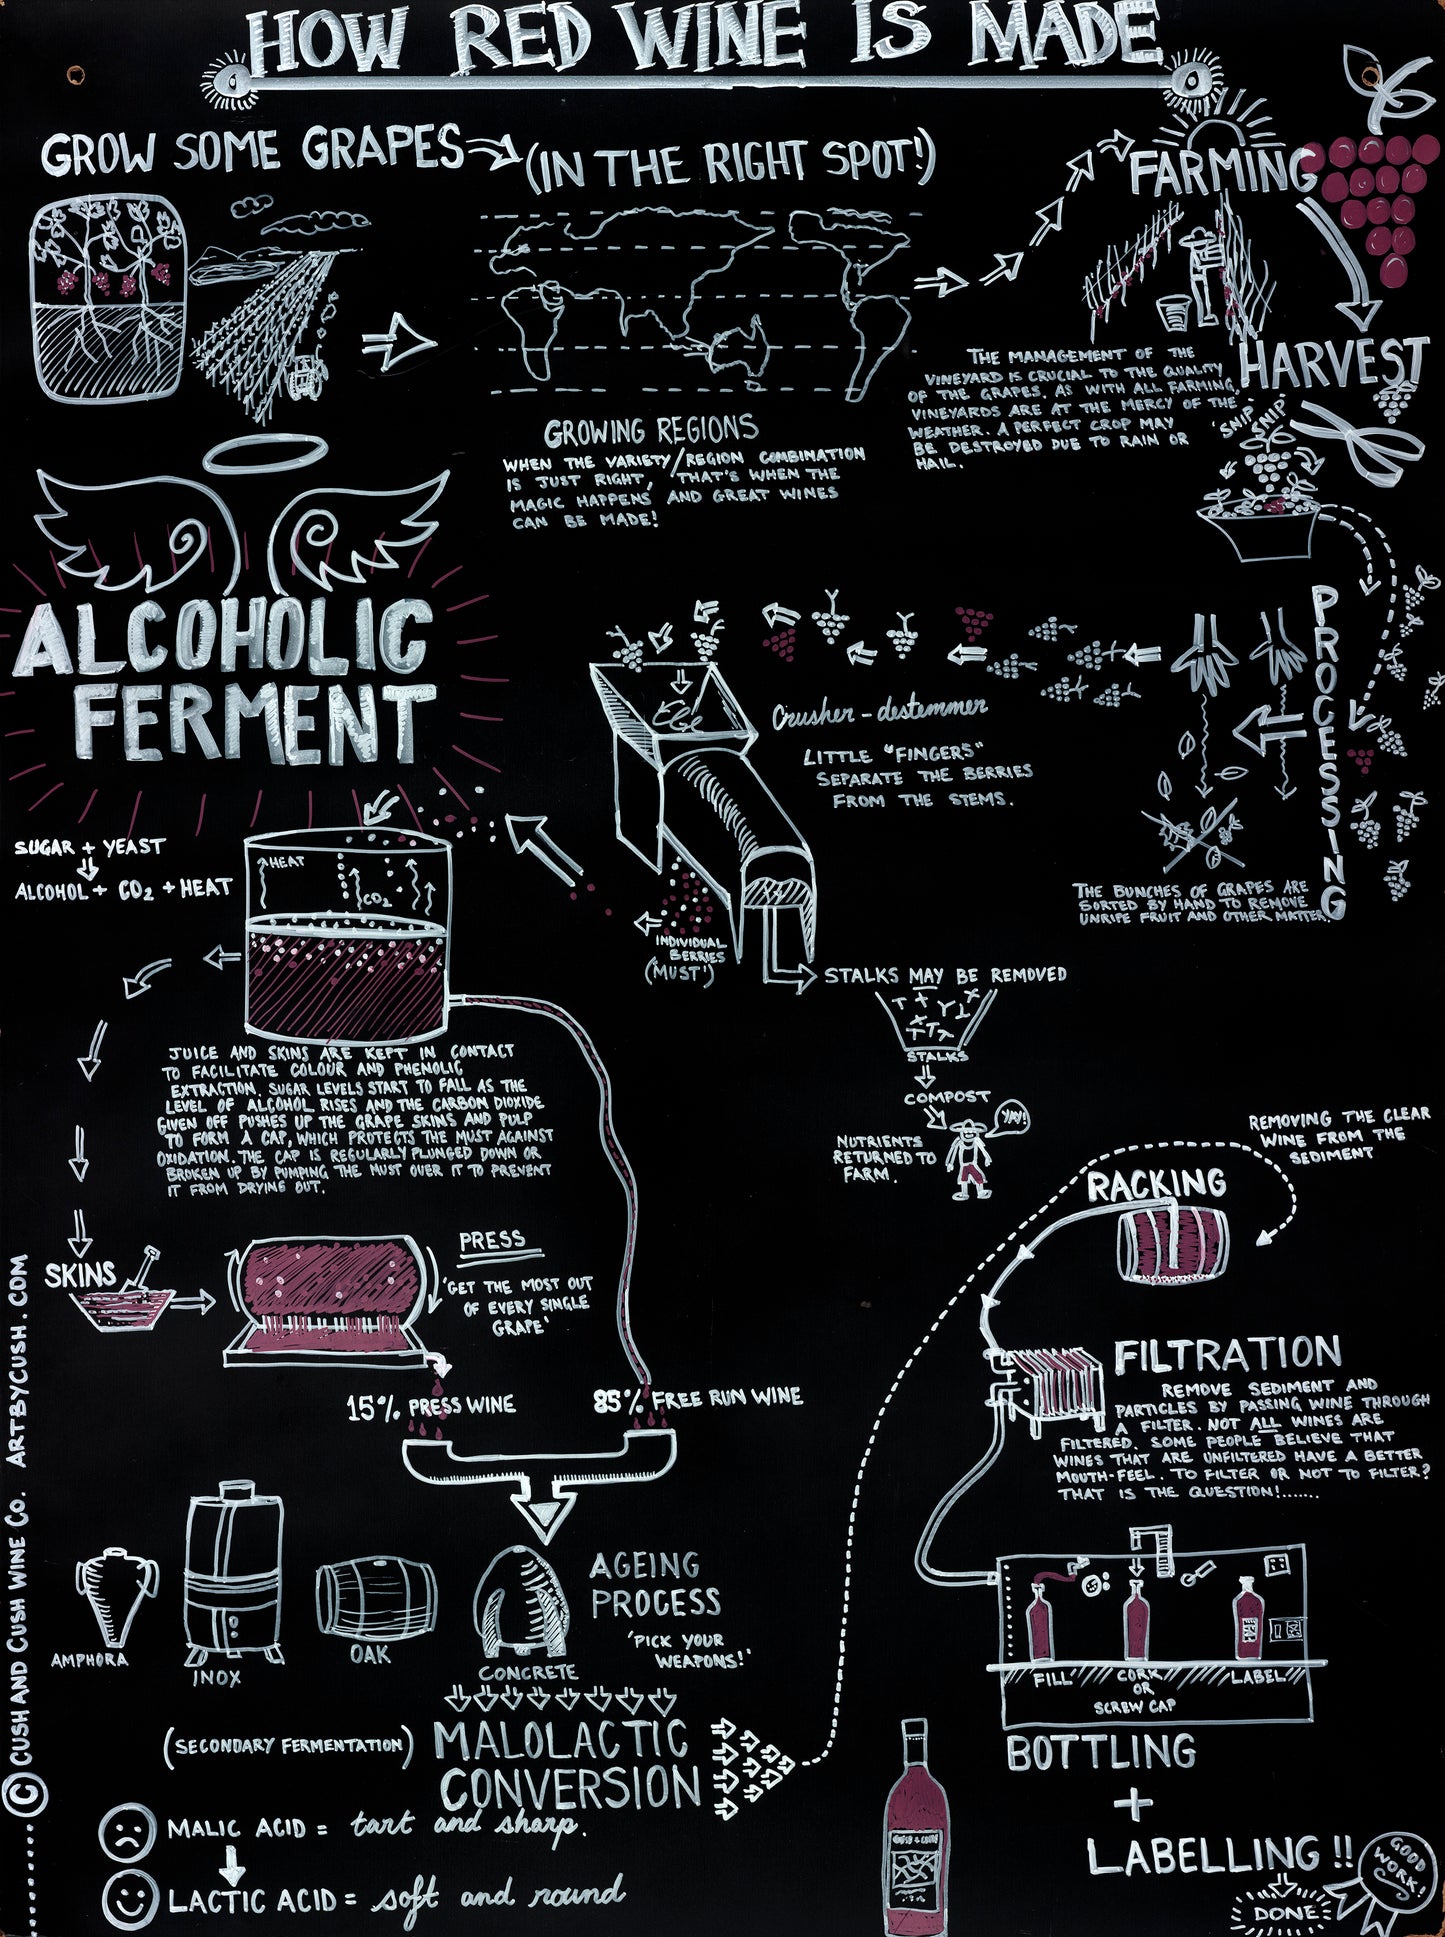 HOW RED WINE IS MADE
GROW SOME GRAPES
(IN THE RIGHT SPOT!)
GROWING REGIONS
WHEN THE VARIETY/REGION COMBINATION
IS JUST RIGHT, 'THAT'S WHEN THE
MAGIC HAPPENS' AND GREAT WINES
CAN BE MADE!
FARMING
THE MANAGEMENT OF THE
VINEYARD IS CRUCIAL TO THE QUALITY
OF THE GRAPES. AS WITH ALL FARMING,
VINEYARDS ARE AT THE MERCY OF THE
WEATHER. A PERFECT CROP MAY
BE DESTROYED DUE TO RAIN OR
HAIL.
HARVEST
'SNIP SNIP'
PROCESSING
THE BUNCHES OF GRAPES ARE
SORTED BY HAND TO REMOVE
UNRIPE FRUIT AND OTHER MATTER.
Crusher-destemmer
LITTLE "FINGERS"
SEPARATE THE BERRIES
FROM THE STEMS.
INDIVIDUAL
BERRIES
('MUST')
STALKS MAY BE REMOVED
STALKS
COMPOST
YAY!
NUTRIENTS
RETURNED TO
FARM.
ALCOHOLIC
FERMENT
SUGAR + YEAST
ALCOHOL + CO2 + HEAT
HEAT
CO2
JUICE AND SKINS ARE KEPT IN CONTACT
TO FACILITATE COLOUR AND PHENOLIC
EXTRACTION. SUGAR LEVELS START TO FALL AS THE
LEVEL OF ALCOHOL RISES AND THE CARBON DIOXIDE
GIVEN OFF PUSHES UP THE GRAPE SKINS AND PULP
TO FORM A CAP, WHICH PROTECTS THE MUST AGAINST
OXIDATION. THE CAP IS REGULARLY PLUNGED DOWN OR
BROKEN UP BY PUMPING THE MUST OVER IT TO PREVENT
IT FROM DRYING OUT.
SKINS
PRESS
'GET THE MOST OUT
OF EVERY SINGLE
GRAPE'
15% PRESS WINE
85% FREE RUN WINE
AGEING
PROCESS
'PICK YOUR
WEAPONS!'
AMPHORA
INOX
OAK
CONCRETE
(SECONDARY FERMENTATION)
MALOLACTIC
CONVERSION
MALIC ACID = tart and sharp.
LACTIC ACID = soft and round
RACKING
REMOVING THE CLEAR
WINE FROM THE
SEDIMENT
FILTRATION
REMOVE SEDIMENT AND
PARTICLES BY PASSING WINE THROUGH
A FILTER. NOT ALL WINES ARE
FILTERED. SOME PEOPLE BELIEVE THAT
WINES THAT ARE UNFILTERED HAVE A BETTER
MOUTH-FEEL. TO FILTER OR NOT TO FILTER?
THAT IS THE QUESTION!.......
FILL
CORK
OR
SCREW CAP
LABEL
BOTTLING
+
LABELLING!!
DONE
GOOD
WORK!
© CUSH AND CUSH WINE CO. ARTBYCUSH.COM